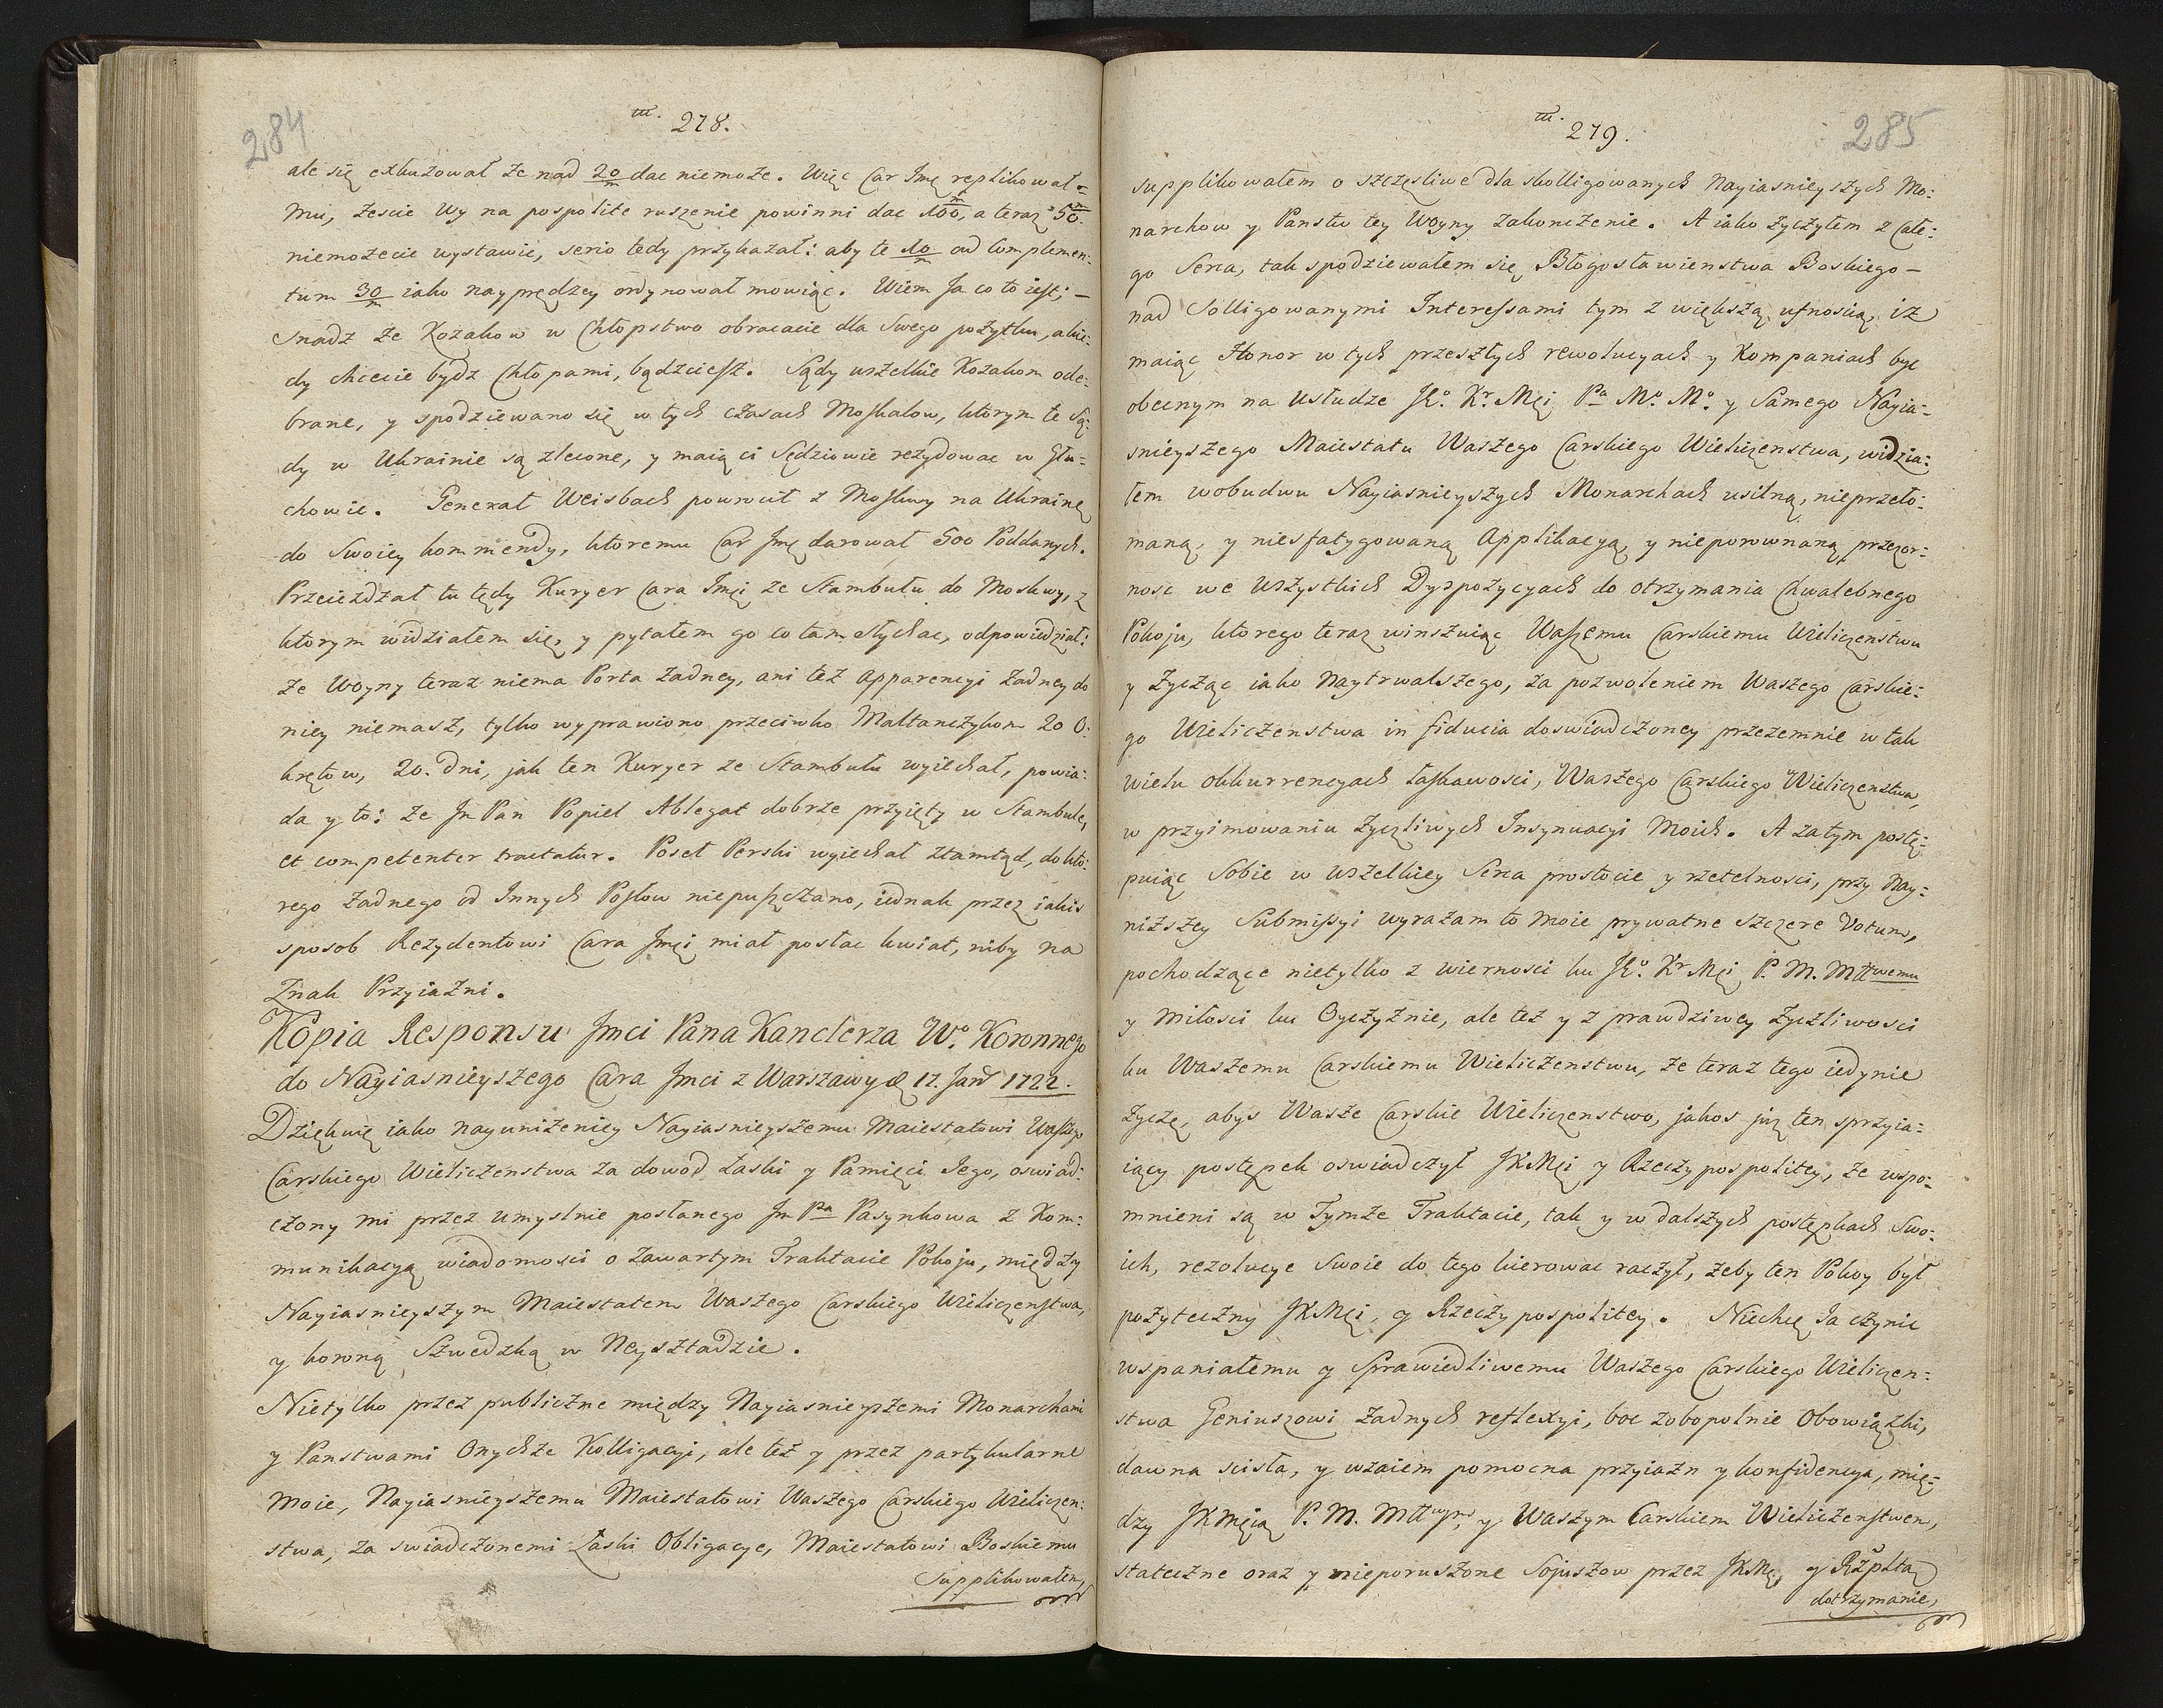 284
m. 278.
ale się exkuzował że nad 20/m dac niemoże. Więc Car Jmę replikował-
mu, żescie Wy na pospolite ruszenie powinni dac 100/m, a teraz 50/m
niemożecie wystawic, serio tedy przykazał: aby te 10/m ad Complemen:
tum 30/m iako nayprędzey ordynował mowiąc. Wiem Ja co to iest; –
snadz że Kozakow w Chłopstwo obracacie dla Swego pożytku, a kie:
dy chcecie bydz Chłopami, bądzciesz. Sądy wszelkie Kozakom ode:
brane, y spodziewano się w tych czasach Moskalow, ktorym te Są:
dy w Ukrainie są zlecone, y maią ci Sędziowie rezydowac w Głu:
chowie. Generał Weisbach powrocił z Moskwy na Ukrainę
do Swoiey kommendy, ktoremu Car Jmę darował 500 Poddanych.
Przeieżdzał tu tędy Kuryer Cara Jmęi ze Stambułu do Moskwy, z
ktorym widziałem się, y pytałem go co tam słychac, odpowiedział:
że Woyny teraz niema Porta żadney, ani też apparencyi żadney do
niey niemasz, tylko wyprawiono przeciwko Maltanczykom 20 O:
krętow, 20. dni, jak ten Kuryer ze Stambułu wyiechał, powia:
da y to: że Jn Pan Popiel Ablegat dobrze przyięty w Stambule,
et competenter tractatur. Poseł Perski wyiechał ztamtąd, do kto:
rego żadnego od Innych Posłow niepuszczano, iednak przez iakis
sposob Rezydentowi Cara Jmęi miał posłac kwiat, niby na
Znak Przyiazni.
Kopia Responsu Jmci Pana Kanclerza Wo. Koronnego
do Nayiasnieyszego Cara Jmci z Warszawy d 17. Janr 1722.
Dziękuię iako nayuniżeniey Nayiasnieyszemu Maiestatowi Waszego
Carskiego Wieliczenstwa za dowod Łaski y Pamięci Jego, oswiad:
czony mi przez umyslnie posłanego Jn Pa Pasynkowa z Kom:
munikacyą wiadomosci o zawartym Traktacie Pokoju, między
Nayiasnieyszym Maiestatem Waszego Carskiego Wieliczenstwa,
y koroną Szwedzką w Neysztadzie.
Nietylko przez publiczne między Nayiasnieyszemi Monarchami
y Panstwami Onychże Kolligacyi, ale też y przez partykularne
moie, Nayiasnieyszemu Maiestatowi Waszego Carskiego Wieliczen:
stwa, za swiadczonemi Łaski Obligacye, Maiestatowi Boskiemu
Supplikowałem,
m. 279.
285
supplikowałem o szczęsliwe dla skolligowanych Nayiasnieyszych Mo:
narchow y Panstw tey Woyny zakonczenie. A iako życzyłem z Całe:
go Serca, tak spodziewałem się Błogosławienstwa Boskiego –
nad Colligowanymi Interessami tym z większą ufnoscią, iż
maiąc Honor w tych przeszłych rewolucyach y Kompaniach byc
obecnym na Usłudze JKo. Kr. Męi Pa Mo. Mo. y Samego Nayia-
snieyszego Maiestatu Waszego Carskiego Wieliczenstwa, widzia:
łem wobudwu Nayiasnieyszych Monarchach usilną, nieprzeło:
maną, y niesfatygowaną Applikacyą, y nieporownaną przezor:
nosc we wszystkich Dyspozycyach do otrzymania Chwalebnego
Pokoju, ktorego teraz winszuiąc Waszemu Carskiemu Wieliczenstwu
y życząc iako naytrwalszego, za pozwoleniem Waszego Carskie:
go Wieliczenstwa in fiducia doswiadczoney przezemnie w tak
wielu okkurrencyach łaskawosci, Waszego Carskiego Wieliczenstwa,
w przyimowaniu życzliwych Insynuacyi Moich. A zatym postę:
puiąc Sobie w wszelkiey Serca prostocie y rzetelnosci, przy nay:
niższey Submissyi wyrażam to moie prywatne szczere Votum,
pochodzące nietylko z wiernosci ku JKo. Kr Męi P. M. Mttwemu
y miłosci ku Oyczyznie, ale też y z prawdziwey życzliwosci
ku Waszemu Carskiemu Wieliczenstwu, że teraz tego iedynie
życzę, abys Wasze Carskie Wieliczenstwo, jakos już ten sprzyia:
iący postępek oswiadczył JKMęi y Rzeczypospolitey, że wspo-
mnieni są w Tymże Traktacie, tak y w dalszych postępkach Swo:
ich, rezolucye Swoie do tego kierowac raczył, żeby ten Pokoy był
pożyteczny JKMęi, y Rzeczypospolitey. Niechcę Ja czynic
wspaniałemu y Sprawiedliwemu Waszego Carskiego Wieliczen:
stwa Geniuszowi żadnych reflexyi, boc zobopolnie Obowiązki,
dawna scisła, y wzaiem pomocna przyiazn y konfidencya, mię:
dzy JKMęią P. M. Mttwym, y Waszym Carskiem Wieliczenstwem,
stateczne oraz y nieporuszone Sojuszow przez JKMę, y Rżpltą
dotrzymanie,